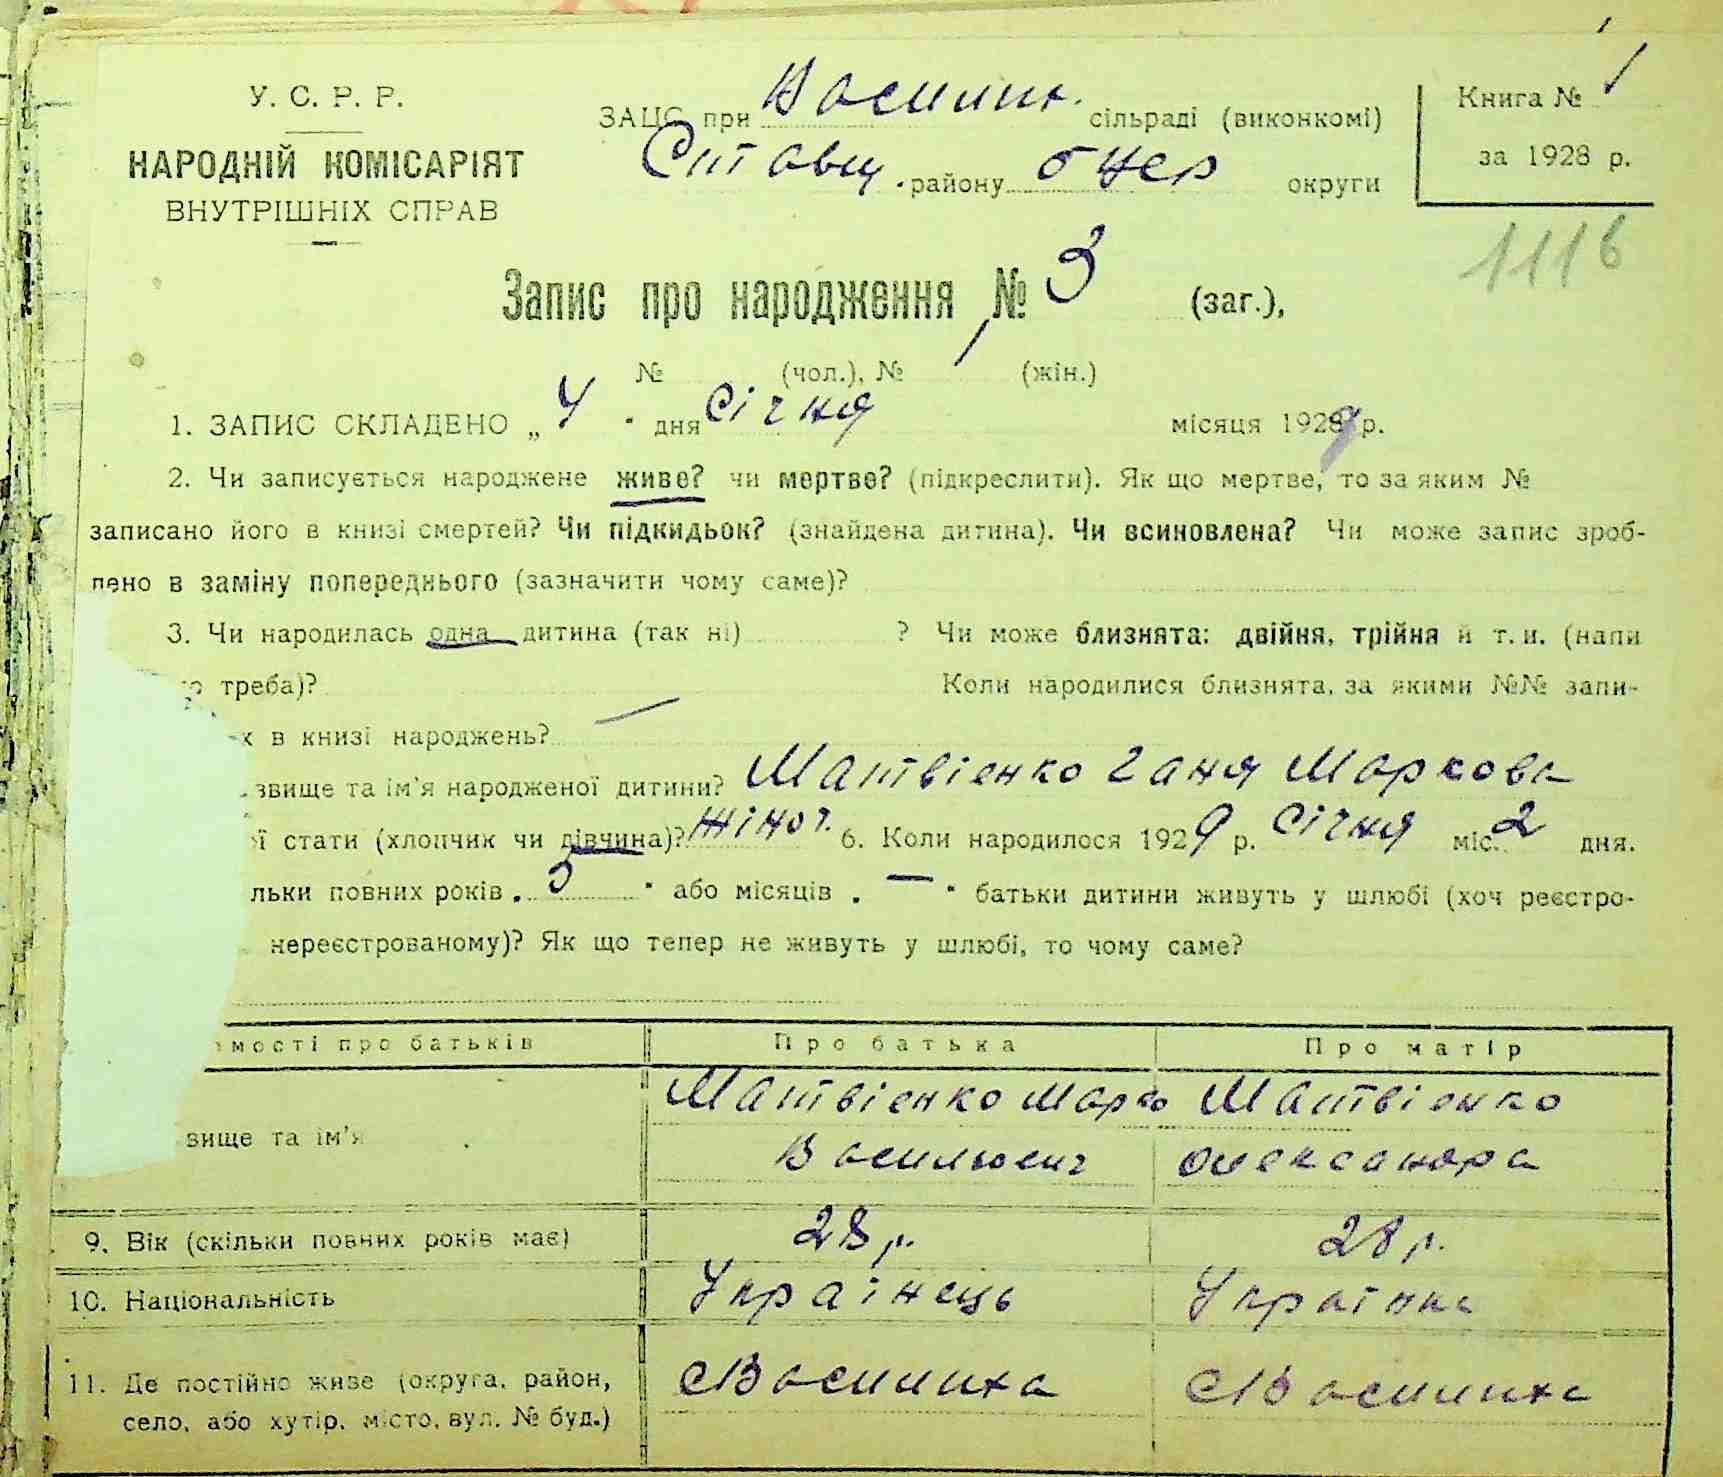 У. С. Р. Р.
НАРОДНІЙ КОМІСАРІЯТ
ВНУТРІШНІХ СПРАВ
ЗАЦС при Василих. сільраді (виконкомі)
Ставищ. району БЦер округи
Книга № 1
за 1928 р.
111б
Запис про народження № 3 (заг.),
№ (чол.), № 1 (жін.)
1. ЗАПИС СКЛАДЕНО „ 4 " дня Січня місяця 1929 р.
2. Чи записується народжене живе? чи мертве? (підкреслити). Як що мертве, то за яким №
записано його в книзі смертей? Чи підкидьок? (знайдена дитина). Чи всиновлена? Чи може запис зроб-
лено в заміну попереднього (зазначити чому саме)?
3. Чи народилась одна дитина (так ні) ? Чи може близнята: двійня, трійня й т. и. (напи
треба)? Коли народилися близнята, за якими №№ запи-
х в книзі народжень? —
звище та ім'я народженої дитини? Матвієнко Ганя Маркова
ї стати (хлопчик чи дівчина)? Жіноч. 6. Коли народилося 1929 р. Січня міс. 2 дня.
льки повних років „ 5 " або місяців „ — " батьки дитини живуть у шлюбі (хоч реєстро-
нереєстрованому)? Як що тепер не живуть у шлюбі, то чому саме?
мості про батьків Про батька Про матір
звище та ім'я Матвієнко Марко Васильович Матвієнко Олександра
9. Вік (скільки повних років має) 28 р. 28 р.
10. Національність Українець Українка
11. Де постійно живе (округа, район, с Василиха с Василиха
село, або хутір, місто, вул. № буд.)